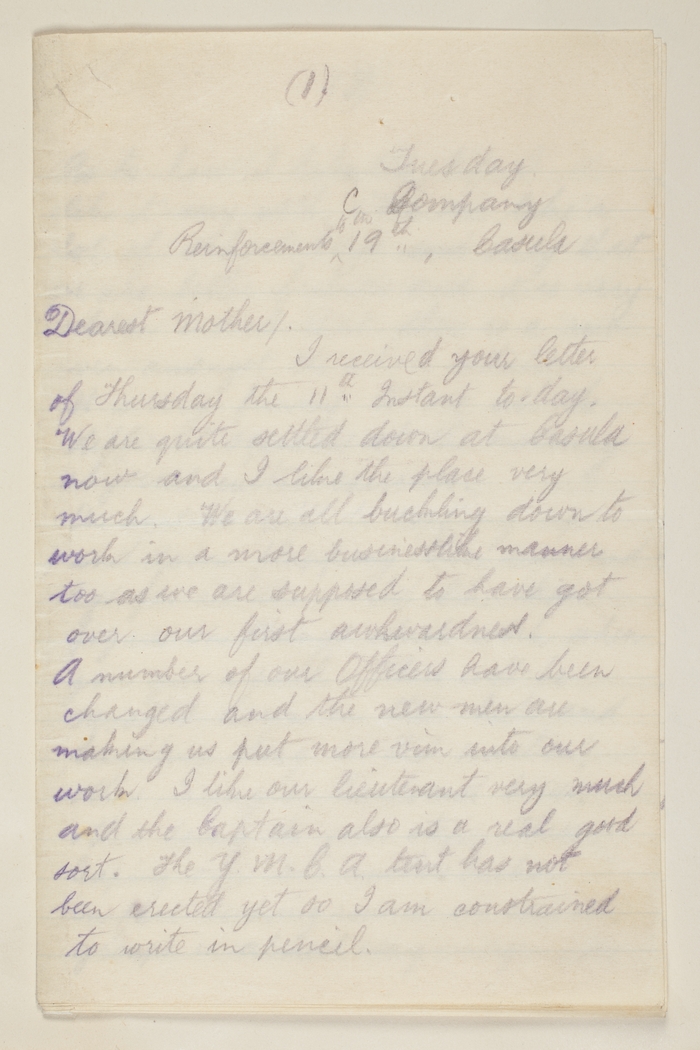 (1)
Tuesday.
C Company
Reinforcements to the 19th, Casula
Dearest Mother/.
I received your letter
of Thursday the 11th Instant to-day.
We are quite settled down at Casula
now and I like the place very
much. We are all buckling down to
work in a more businesslike manner
too as we are supposed to have got
over our first awkwardness.
A number of our Officers have been
changed and the new men are
making us put more vim into our
work. I like our lieutenant very much
and the Captain also is a real good
sort. The Y.M.C.A. tent has not
been erected yet so I am constrained
to write in pencil.